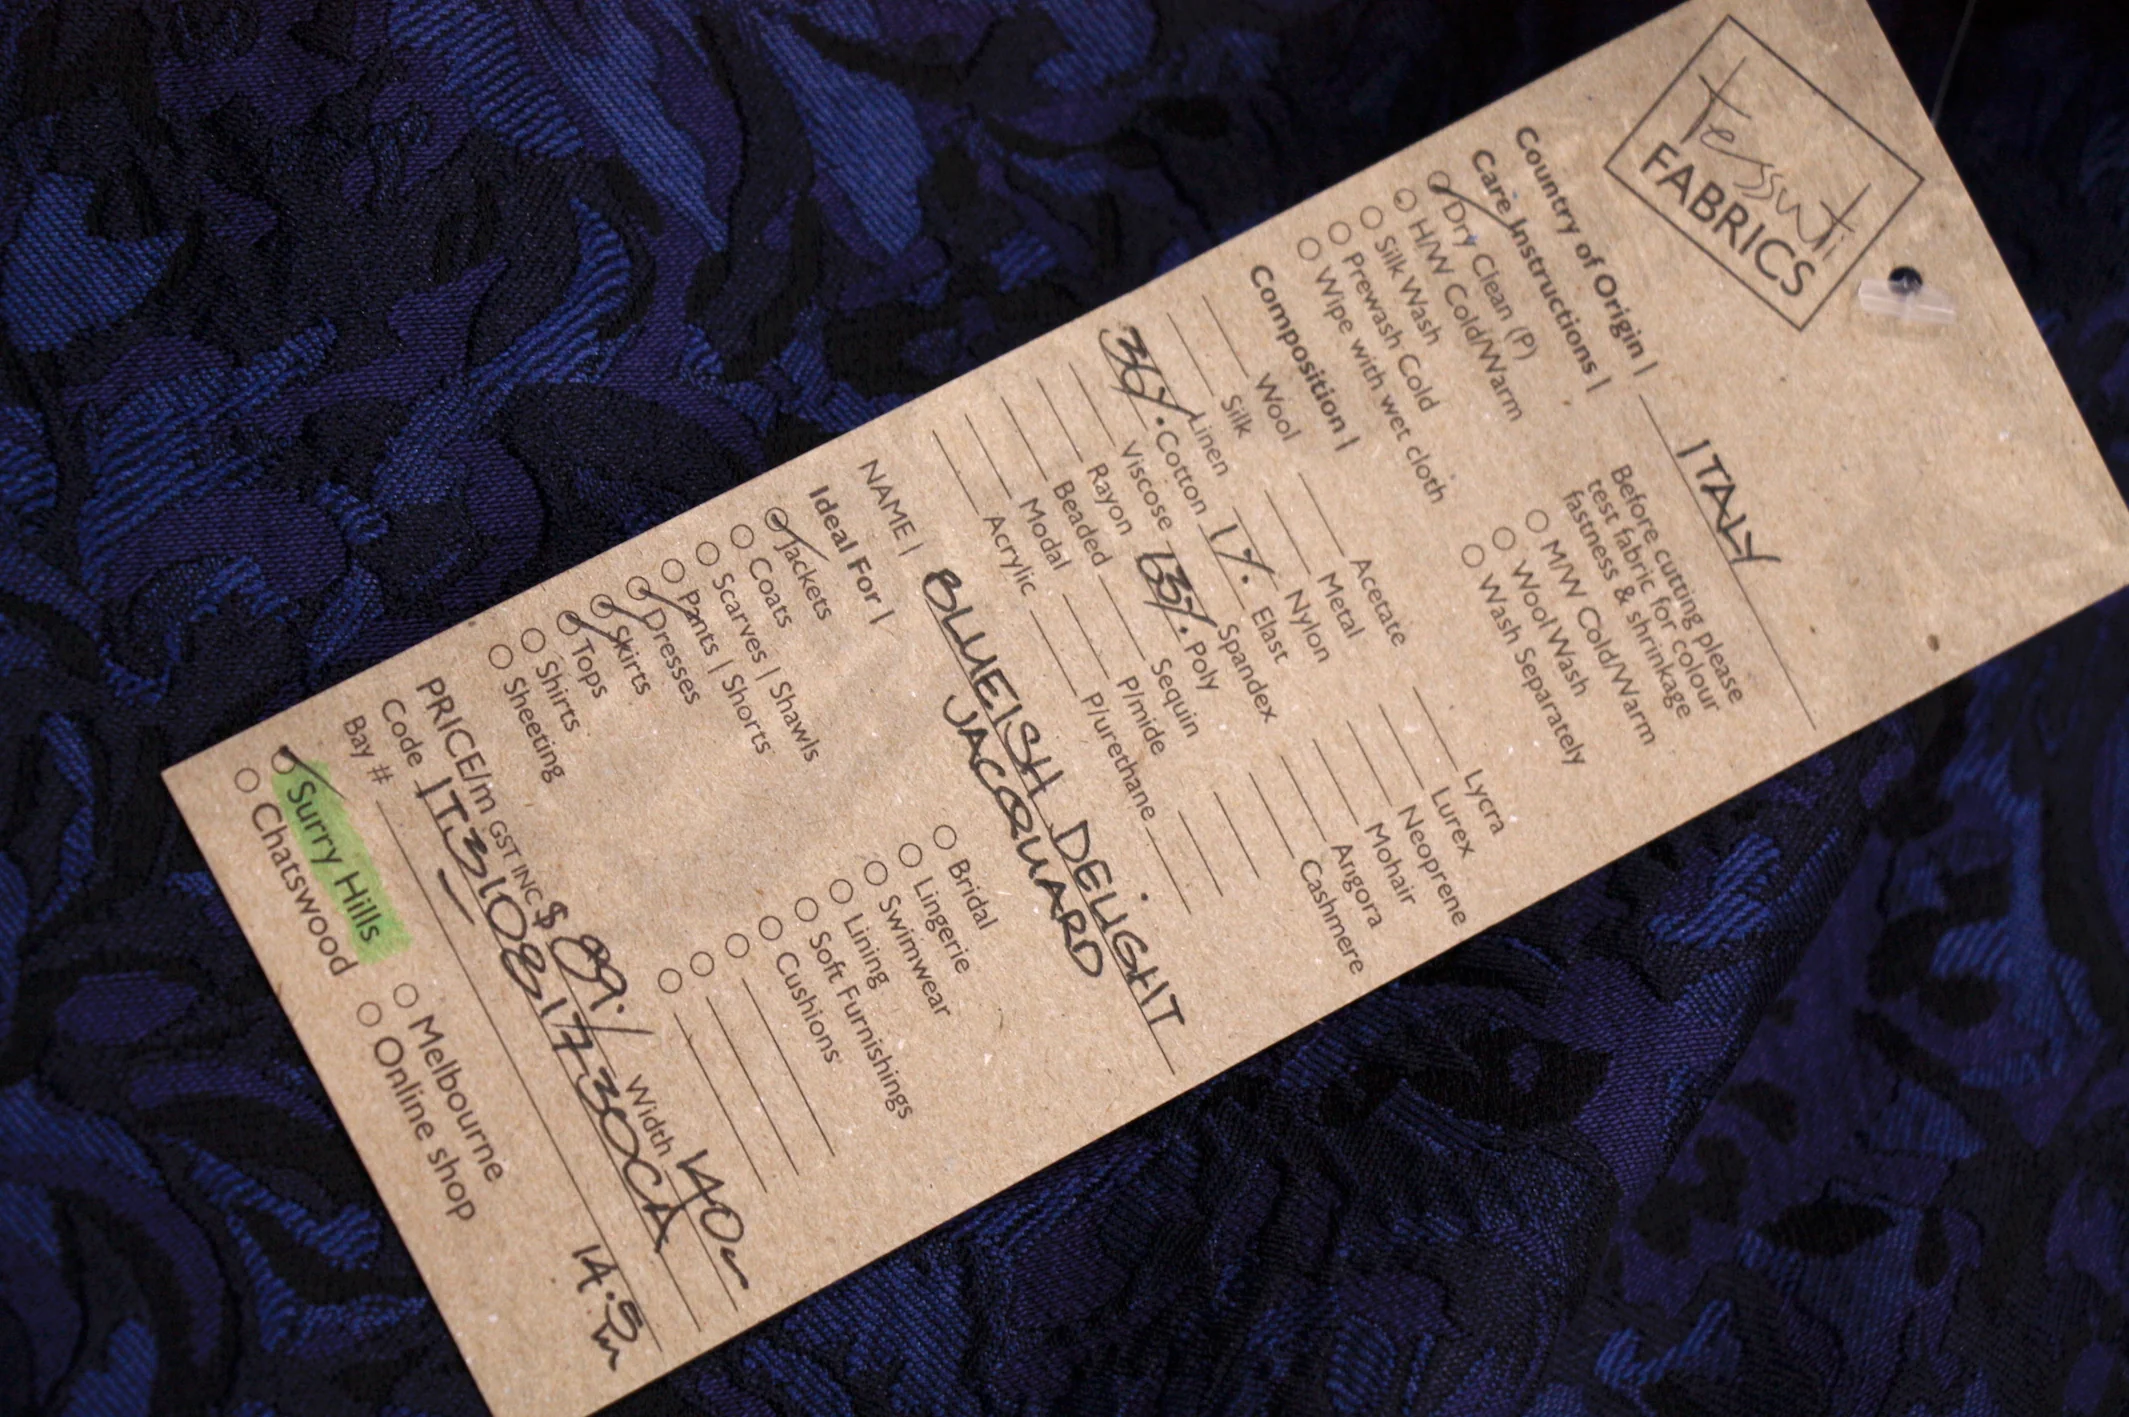 Tessuti
FABRICS
Country of Origin | ITALY
Care Instructions |
Dry Clean (P)
H/W Cold/Warm
Silk Wash
Prewash Cold
Wipe with wet cloth
Before cutting please
test fabric for colour
fastness & shrinkage
M/W Cold/Warm
Wool Wash
Wash Separately
Composition |
Wool Acetate Lycra
Silk Metal Lurex
Linen Nylon Neoprene
36%. Cotton 1%. Elast Mohair
Viscose Spandex Angora
Rayon 63%. Poly Cashmere
Beaded Sequin
Modal P/mide
Acrylic P/urethane
NAME | BLUEISH DELIGHT
JACQUARD
Ideal For |
Jackets
Coats
Scarves | Shawls
Pants | Shorts
Dresses
Skirts
Tops
Shirts
Sheeting
Bridal
Lingerie
Swimwear
Lining
Soft Furnishings
Cushions
PRICE/m GST INC $89./ Width 140
Code IT31081730CA
Bay # 14.9m
Surry Hills Melbourne
Chatswood Online shop